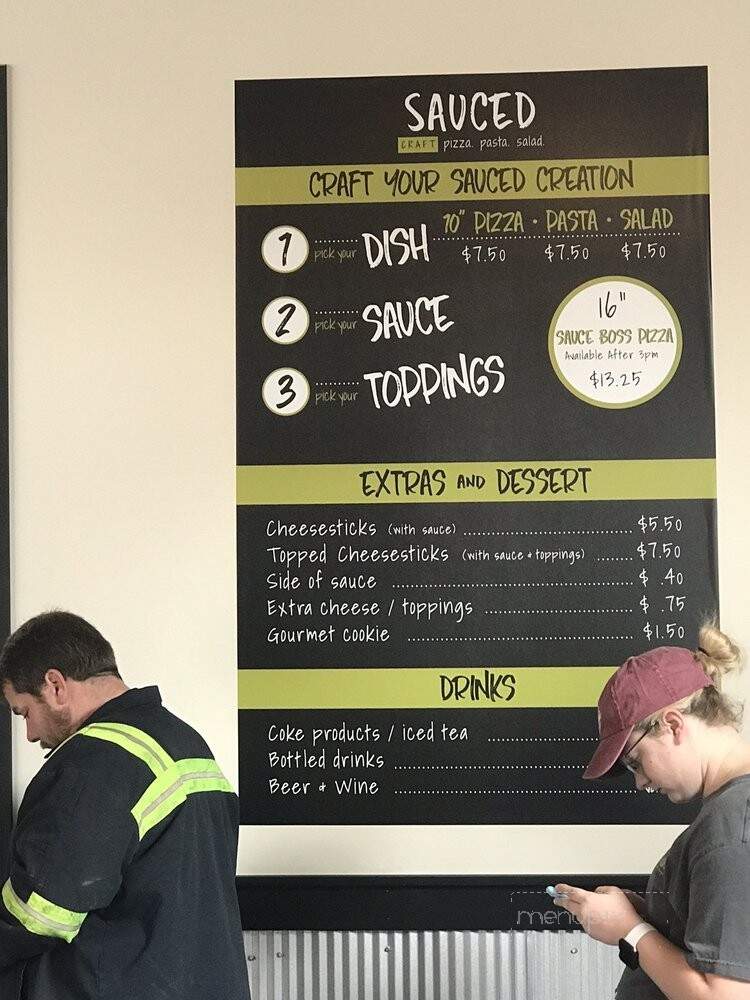 SAUCED
CRAFT pizza. pasta. salad.
CRAFT YOUR SAUCED CREATION
1 pick your DISH 10" PIZZA • PASTA • SALAD
$7.50 $7.50 $7.50
2 pick your SAUCE
3 pick your TOPPINGS
16"
SAUCE BOSS PIZZA
Available After 3pm
$13.25
EXTRAS AND DESSERT
Cheesesticks (with sauce) $5.50
Topped Cheesesticks (with sauce + toppings) $7.50
Side of sauce $ .40
Extra cheese / toppings $ .75
Gourmet cookie $1.50
DRINKS
Coke products / iced tea
Bottled drinks
Beer + Wine